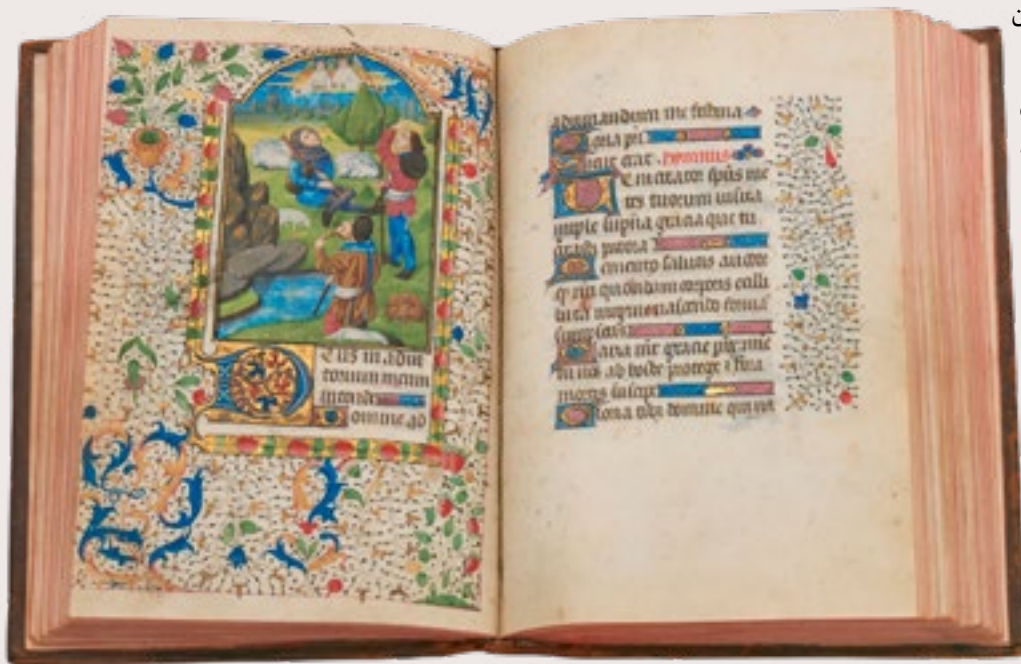 Deus in adiu
torium meum
intende
Domine ad
adiuuandum me festina
Gloria pri
Sicut erat. hymnus
Veni creator sp̄us me
tes tuorum uisita
imple superna gratia que tu
creasti pectora
Memento salutis auctor
quondam corporis ex illi
bata uirgine nascendo
sumpseris
Maria mr̄ gracie
tu nos ab hoste protege
mortis suscipe
Gloria tibi domine qui